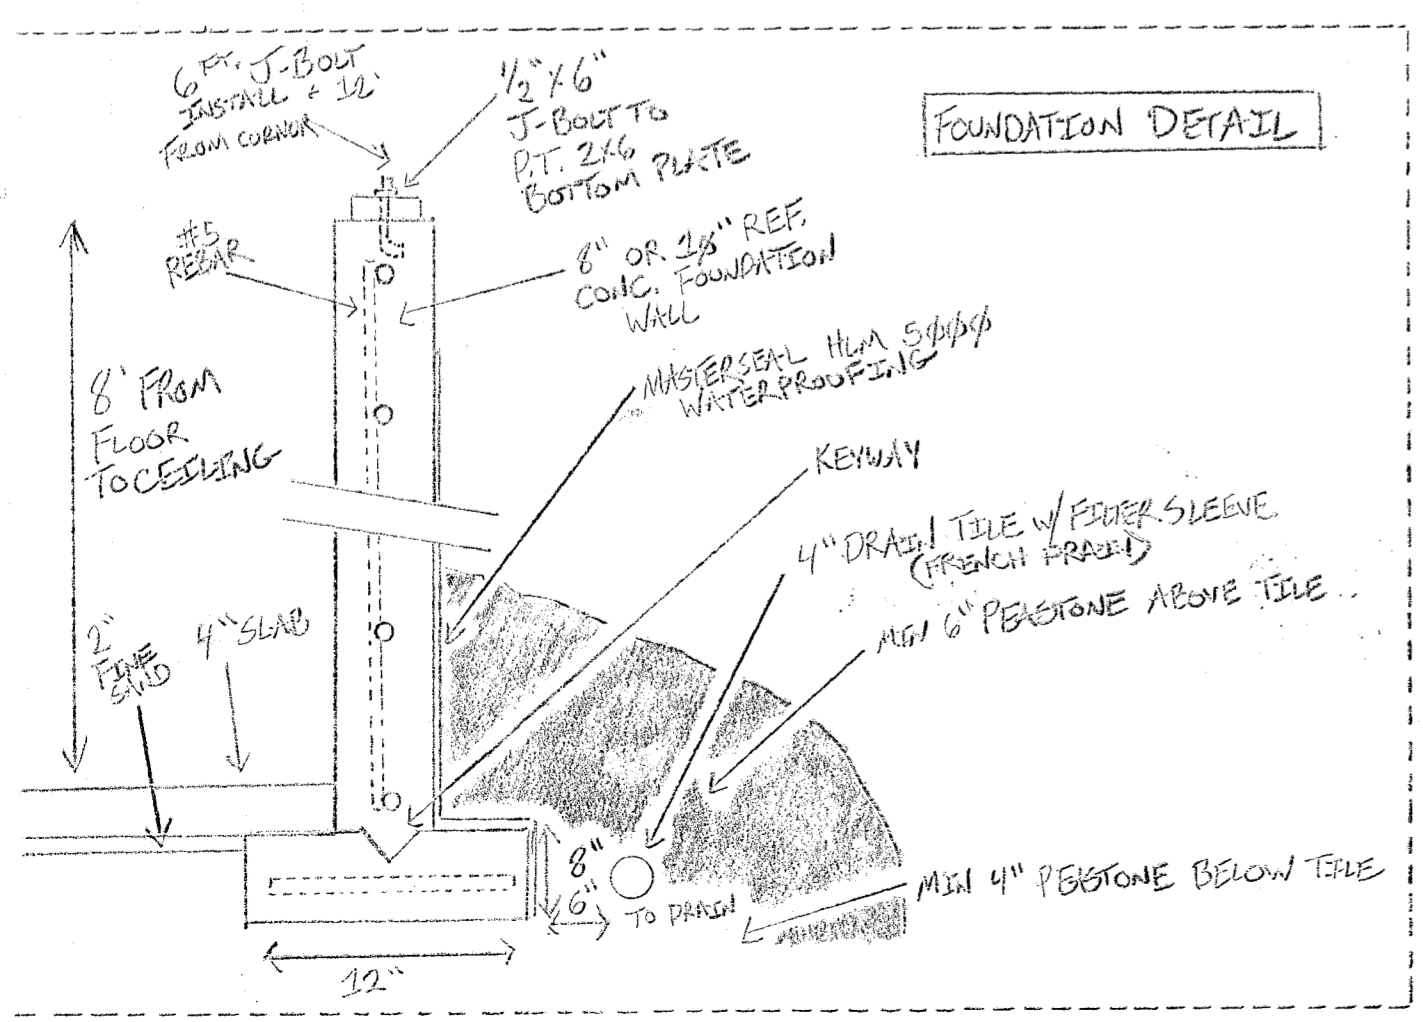 6 FT. J-BOLT
INSTALL + 12'
FROM CORNOR
1/2" X 6"
J-BOLT TO
P.T. 2X6
BOTTOM PLATE
FOUNDATION DETAIL
#5
REBAR
8" OR 10" REF.
CONC. FOUNDATION
WALL
8' FROM
FLOOR
TO CEILING
MASTERSEAL HLM 5000
WATERPROOFING
KEYWAY
4" DRAIN TILE W/ FILTER SLEEVE
(FRENCH DRAIN)
MIN 6" PEASTONE ABOVE TILE
2"
FINE
SAND
4" SLAB
8"
6"
TO DRAIN
MIN 4" PEASTONE BELOW TILE
12"